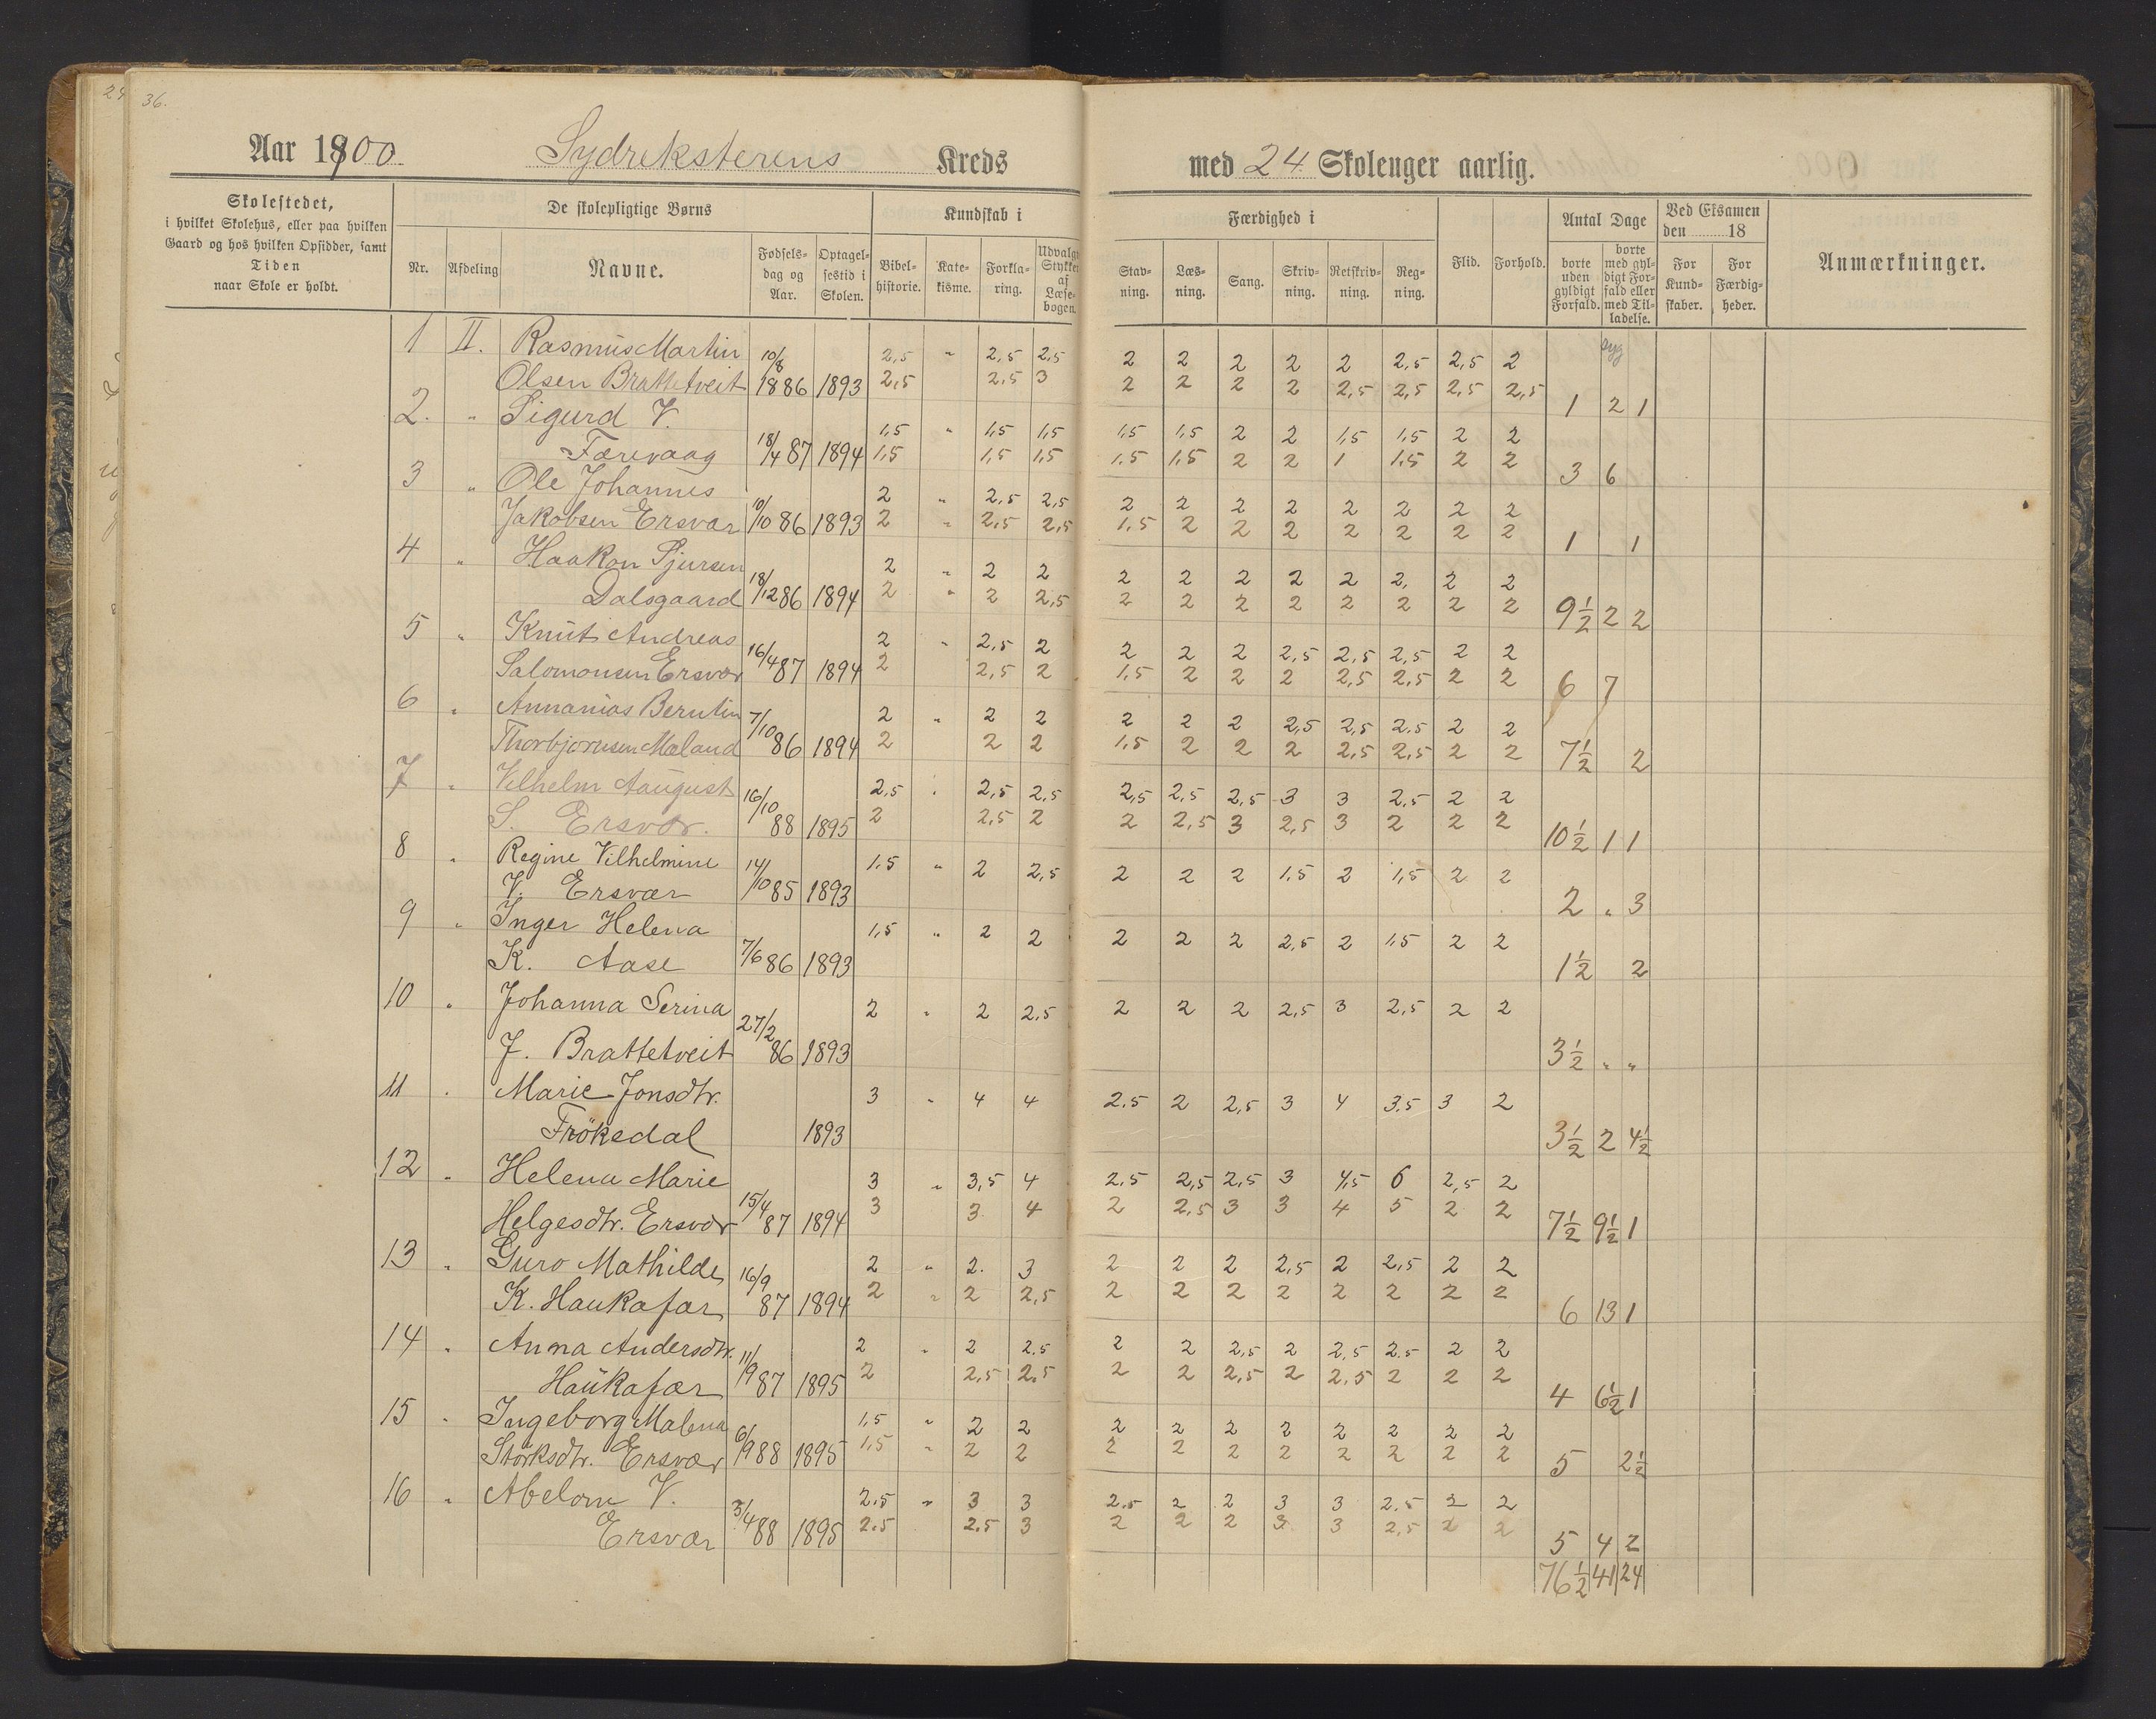 24 36.
Aar 1900. Sydreksterens Kreds med 24 Skolenger aarlig.
Skolestedet,
i hvilket Skolehus, eller paa hvilken
Gaard og hos hvilken Opsidder, samt
Tiden
naar Skole er holdt.
De skolepligtige Børns
Nr. Afdeling Navne. Fødsels-dag og Aar. Optagel-sestid i Skolen.
Kundskab i
Bibel-historie. Kate-kisme. Forkla-ring. Udvalgte Stykker af Læse-bogen.
Færdighed i
Stav-ning. Læs-ning. Sang. Skriv-ning. Retskriv-ning. Reg-ning.
Flid. Forhold.
Antal Dage
borte uden gyldigt Forfald. borte med gyl-digt For-fald eller med Til-ladelse.
Ved Eksamen den 18
For Kund-skaber. For Færdig-heder.
Anmærkninger.
1 II. Rasmus Martin 10/8 2,5 " 2,5 2,5 2 2 2 2 2 2,5 2,5 2 syg
Olsen Brattetveit 1886 1893 2,5 2,5 3 2 2 2 2 2,5 2,5 2,5 2,5 1 2 1
2. " Sigurd V. 1,5 " 1,5 1,5 1,5 1,5 2 2 1,5 1,5 2 2
Færevaag 18/4 87 1894 1,5 1,5 1,5 1.5 1,5 2 2 1 1.5 2 2 3 6
3 " Ole Johannes 2 " 2,5 2,5 2 2 2 2 2 2 2 2
Jakobsen Ersvær 10/10 86 1893 2 " 2,5 2,5 1.5 2 2 2 2 2 2 2 1 1
4 " Haakon Sjursen 2 " 2 2 2 2 2 2 2 2, 2 2
Dalsgaard 18/12 86 1894 2 " 2 2,5 2 2 2 2 2 2 2 2 9½ 2 2
5 " Knut Andreas 2 " 2,5 2 2 2 2 2,5 2,5 2,5 2 2
Salomonsen Ersvær 16/4 87 1894 2 2,5 2 1,5 2 2 2 2,5 2,5 2 2 6 7
6 " Annanias Berntin 2 " 2 2 2 2 2 2,5 2,5 2.5 2 2
Thorbjørnsen Mæland 7/10 86 1894 2 2 2 1,5 2 2 2 2,5 2,5 2 2 7½ 2
7 " Vilhelm Aaugust 2,5 " 2,5 2,5 2,5 2,5 2,5 3 3 2,5 2 2
S. Ersvær. 16/10 88 1895 2 2,5 2 2 2,5 3 2,5 3 2 2 2 10½ 1 1
8 " Regine Vilhelmine 1,5 " 2 2,5 2 2 2 1,5 2 1,5 2 2
V. Ersvær 14/10 85 1893 2 " 3
9 " Inger Helena 1,5 " 2 2 2 2 2 2,5 2 1,5 2 2
K. Aase 7/6 86 1893 1½ 2
10 " Johanna Serina 2 " 2 2,5 2 2 2 2,5 3 2,5 2 2
J. Brattetveit 27/2 86 1893 3½ " "
11 " Marie Jonsdtr. 3 " 4 4 2.5 2 2,5 3 4 3.5 3 2
Frøksedal 1893 3½ 2 4½
12 " Helena Marie 3 " 3,5 4 2.5 2,5 2,5 3 4,5 6 2,5 2
Helgesdtr. Ersvær 15/4 87 1894 3 3 4 2 2,5 3 3 4 5 2 2 7½ 9½ 1
13 " Guro Mathilde 2 " 2. 3 2 2 2 2,5 2 2,5 2 2
K. Haukafær 16/9 87 1894 2 " 2 2,5 2 2 2 2 2 2 2 2 6 13 1
14 " Anna Andersdtr. 2 " 2 2.5 2 2 2,5 2 2,5 2.5 2 2
Haukafær 11/9 87 1895 2 2,5 2.5 2 2 2,5 2 2.5 2 2 2 4 6½ 1
15 " Ingeborg Malena 1,5 " 2 2 2 2 2 2 2 2 2 2
Størksdtr. Ersvær 6/9 88 1895 1,5 " 2 2 2 2 2 2 2 2 2 2 5 2½
16 " Abelone V. 2.5 " 3 3 2.5 2 2 3 3 2.5 2 2
Ersvær 3/4 88 1895 2.5 2.5 3 2 2 2 3 3 2,5 2 2 5 4 2
76½ 41 24